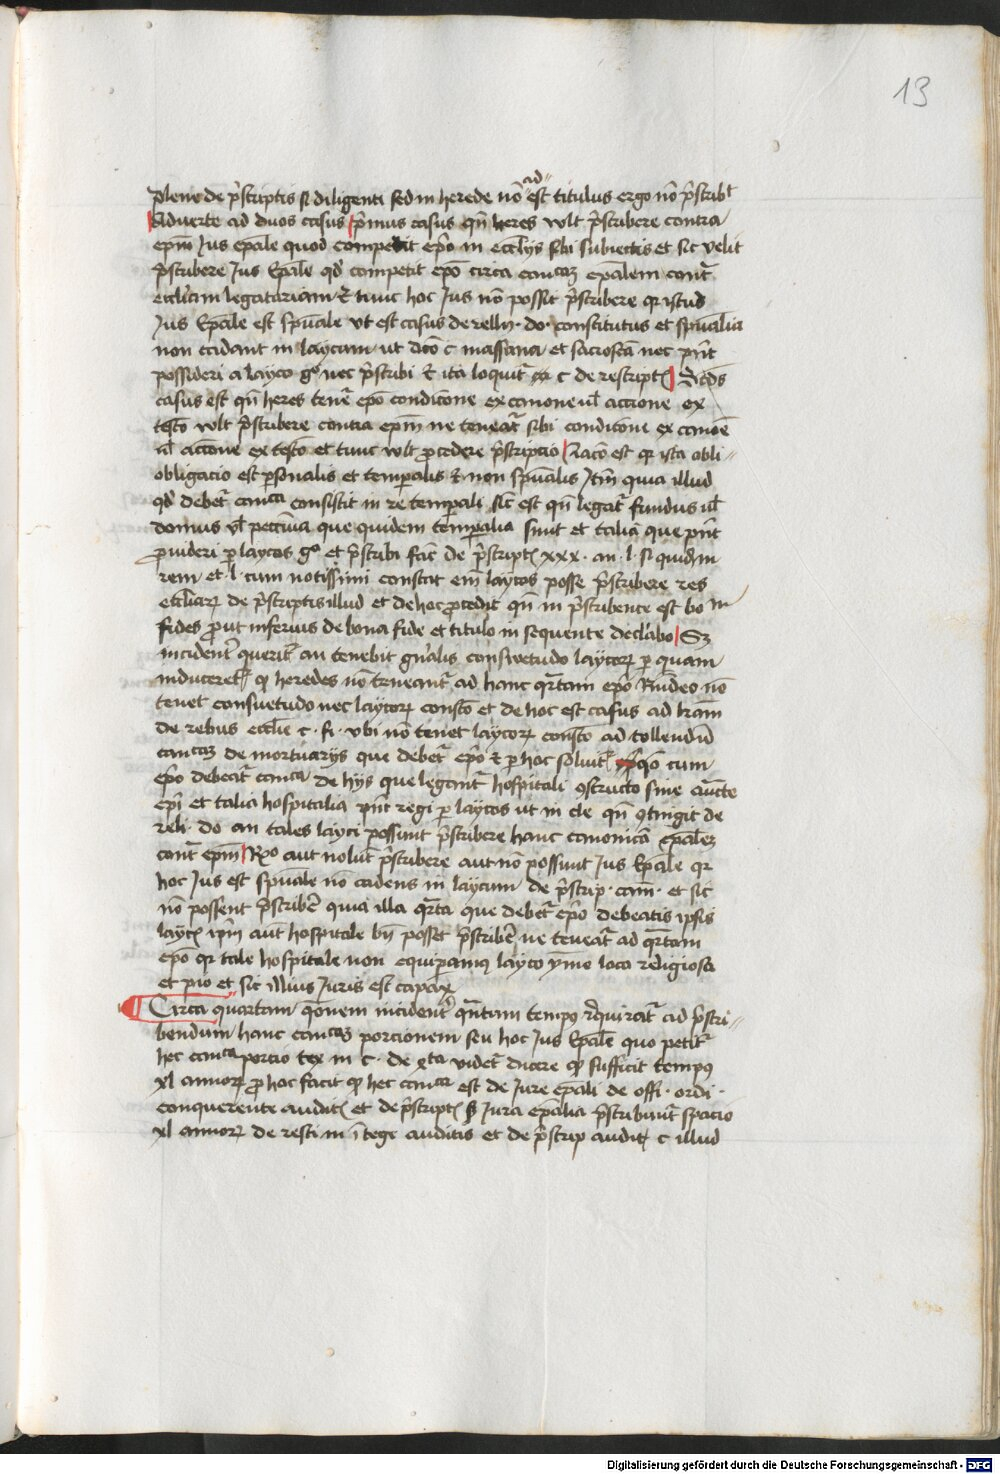 13
plene de p̄scriptis si diligenti sed in herede nō ad est titulus ergo nō p̄scribit
Aduerte ad duos casus p̄mus casus qn̄ heres vult p̄scribere contra
epm̄ Jus epāle quod competit epō in ecclijs sibi subiectis et sic velit
p̄scribere Jus Epāle qd̄ competit epō circa canicaȝ epālem contͣ
ecclīam legatariam et tunc hoc Jus nō possit p̄scribere qꝛ istud
Jus Epāle est spūale vt est casus de relig. do. constitutus et spūalia
non cadunt in laycum ut dc̄o c massana et sacrosctā nec pn̄t
possideri a layco gͦ nec p̄scribi et ita loquitͬ c de rescriptꝭ Scd̄s
casus est qn̄ heres tenetͬ epō condicōne ex canone ul̄ accione ex
testō vult p̄scribere contra epm̄ ne teneatͬ sibi condicōne ex canōe
ul̄ accōne ex testō et tunc vult p̱cedere p̄scripcio Racō est qꝛ ista obli-
obligacio est ꝑsonalis et temꝑalis et non spūalis Itm̄ quia illud
qd̄ debetͬ canica consistit in re temꝑali sic̄ est qn̄ legatͬ fundus ul̄
domus vl̄ peccūnia que quidem temꝑalia sunt et talia que pn̄t
ꝓuideri ꝑ laycos gͦ et p̄scribi fac̄ de p̄scriptꝭ xxx. an. l. si quidem
rem et. l. cum notissimi constat em̄ laycos posse p̄scribere res
eccliarꝝ de p̄scriptis illud et de hoc ꝓcedit qn̄ in p̄scribente est bo
fides ꝓut inferius de bona fide et titulo in sequente declābo Sꝫ
incidentͬ queritͬ an tenebit gn̄alis consuetudo laycorꝝ ꝑ quam
induceretͬ ꝙ heredes nō teneantͬ ad hanc qͬtam epō Rn̄deo nō
tenet consuetudo nec laycorꝝ constō et de hoc est casus ad lrām
de rebus ecclie c. fi. vbi nō tenet laycorꝝ constō ad tollendū
canicaȝ de mortuarijs que debetͬ epō et ꝑ hoc soluitͬ qō cum
epō debeatͬ canica de hijs que legantͬ hospitali ꝯstructo sine auctte
epī et talia hospitalia pn̄t regi ꝑ laycos ut in cle qn̄ ꝯtingit de
reli. do an tales layci possunt p̄scribere hanc canonicā epāleȝ
contͣ epm̄ Rͦ aut nolūt p̄scribere aut nō possunt Jus Epāle qꝛ
hoc Jus est spūale nō cadens in laycum de p̄scrip. cam. et sic
nō possent p̄scribe͛ quia illa qͬta que debetͬ epō debeatis ipsis
laycꝭ ipm̄ aut̄ hospitale bn̄ posset p̄scribe͛ ne teneatͬ ad qͬtam
epō qꝛ tale hospitale non equiꝑamꝰ layco ymo loca religiosa
et pio et sic illius Juris est capax
Circa quartam qōnem incidentͬ qn̄tam tempꝰ reqͥratͬ ad p̄scri-
bendum hanc canicaȝ porcionem seu hoc Jus Epāle quo petitͬ
hec canica porcio tex in c. de qͬta videtͬ dicere ꝙ sufficit tempꝰ
xl annorꝝ ꝓ hoc facit ꝙ hec canica est de Jure epāli de offi. ordi.
conquerente auditꝭ et de p̄scriptꝭ sꝫ Jura epālia p̄scribunt̄ spacio
xl annorꝝ de resti in ītegͬ auditis et de p̄scrip auditꝭ c illud
Digitalisierung gefördert durch die Deutsche Forschungsgemeinschaft - DFG